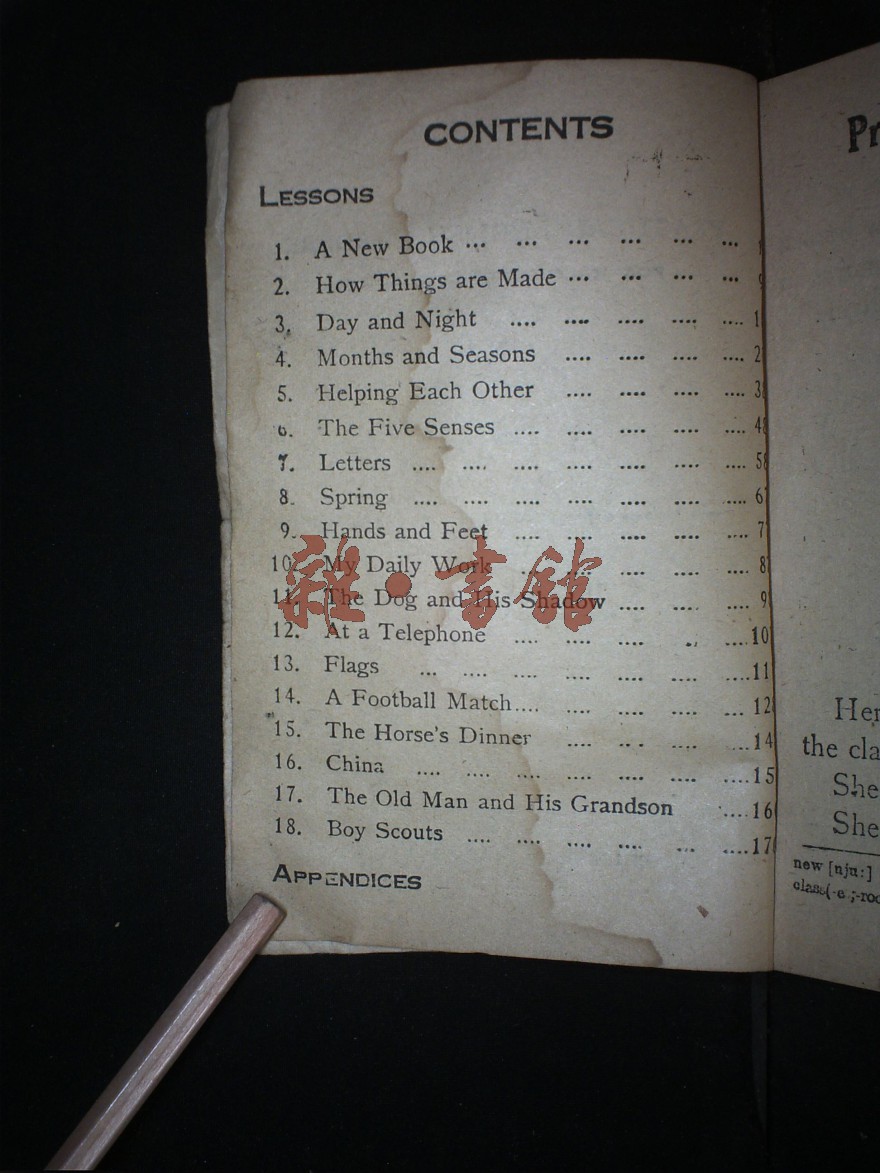 CONTENTS
LESSONS
1. A New Book ... ... ... ... ... ...
2. How Things are Made ... ... ... ...
3. Day and Night .... .... .... .... .... 1
4. Months and Seasons .... .... .... .... 2
5. Helping Each Other .... .... .... .... 3
6. The Five Senses .... .... .... .... .... 4
7. Letters .... .... .... .... .... .... .... 5
8. Spring .... .... .... .... .... .... .... 6
9. Hands and Feet .... .... .... .... .... 7
10. My Daily Work .... .... .... .... .... 8
11. The Dog and His Shadow .... .... .... 9
12. At a Telephone .... .... .... .... ....10
13. Flags ... .... .... .... .... .... ....11
14. A Football Match.... .... .... .... ... 12
15. The Horse's Dinner .... .... .... ....14
16. China .... .... .... .... .... .... ....15
17. The Old Man and His Grandson ....16
18. Boy Scouts .... .... .... .... ... ....17
APPENDICES
雜·書館
Pr
Her
the cla
She
She
new [nju:]
class(-